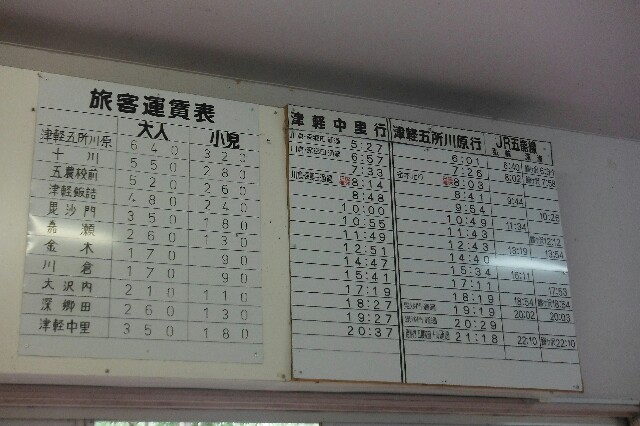 旅客運賃表
大人 小児
津軽五所川原 640 320
十川 550 280
五農校前 520 260
津軽飯詰 480 240
毘沙門 350 180
嘉瀬 260 130
金木 170 90
川倉 170 90
大沢内 210 110
深郷田 260 130
津軽中里 350 180
津軽中里行
5:27
6:57
7:33
8:14
8:48
10:00
10:55
11:49
12:51
14:47
15:41
17:19
18:27
19:27
20:37
津軽五所川原行
6:01
7:25
8:03
8:41
9:54
10:49
11:43
12:43
14:40
15:34
17:11
18:19
19:19
20:29
21:18
JR五能線
6:02 7:58
9:44
10:29
11:34
12:12
13:19 13:54
16:11
17:53
18:54 18:54
20:02 20:03
22:10 22:10